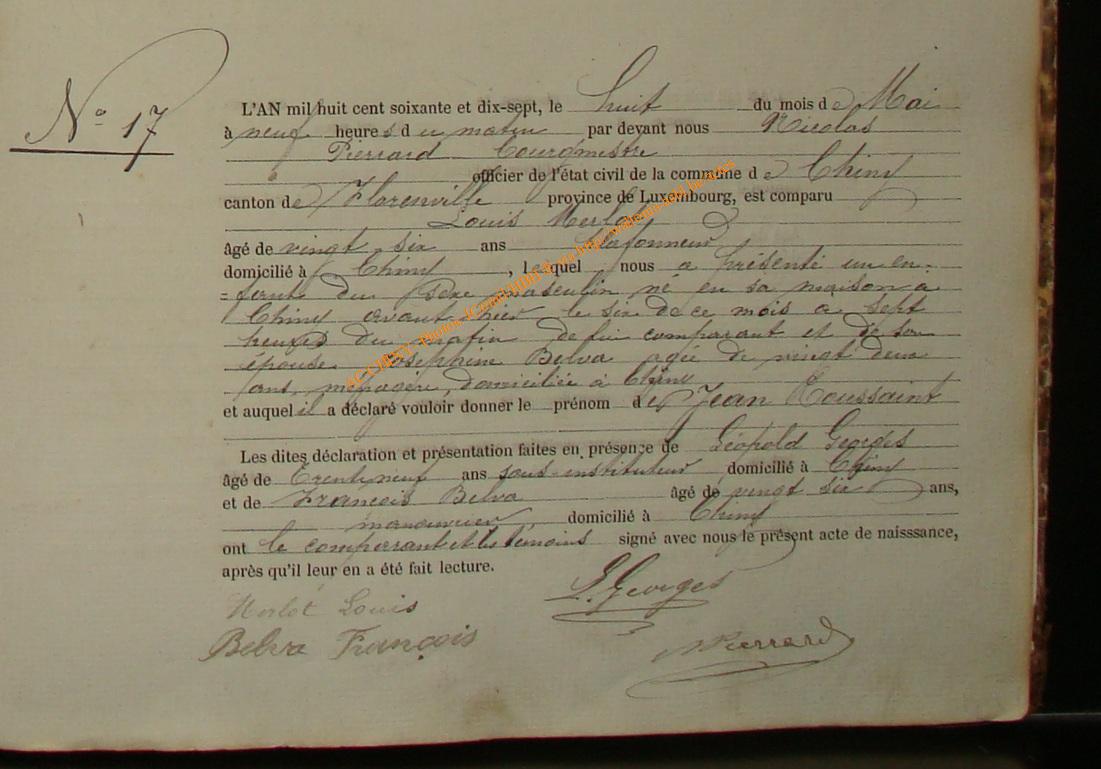 N° 17
L'AN mil huit cent soixante et dix-sept, le huit du mois de Mai
à neuf heures du matin par devant nous Nicolas
Pierrard bourgmestre
officier de l'état civil de la commune de Chiny
canton de Florenville province de Luxembourg, est comparu
Louis Merlot
âgé de vingt six ans plafonneur
domicilié à Chiny, lequel nous a présenté un en-
=fant du sexe masculin né en sa maison à
Chiny avant hier le six de ce mois à sept
heures du matin de lui comparant et de son
épouse Josephine Belva agée de vingt deux
ans, ménagère, domiciliée à Chiny
et auquel il a déclaré vouloir donner le prénom de Jean Toussaint
Les dites déclaration et présentation faites en présence de Léopold Georges
âgé de trente neuf ans sous-instituteur domicilié à Chiny
et de François Belva âgé de vingt six ans,
manouvrier, domicilié à Chiny
ont le comparrant et les témoins signé avec nous le présent acte de naisssance,
après qu'il leur en a été fait lecture.
L. Georges
Merlot Louis
Belva François
NPierrard